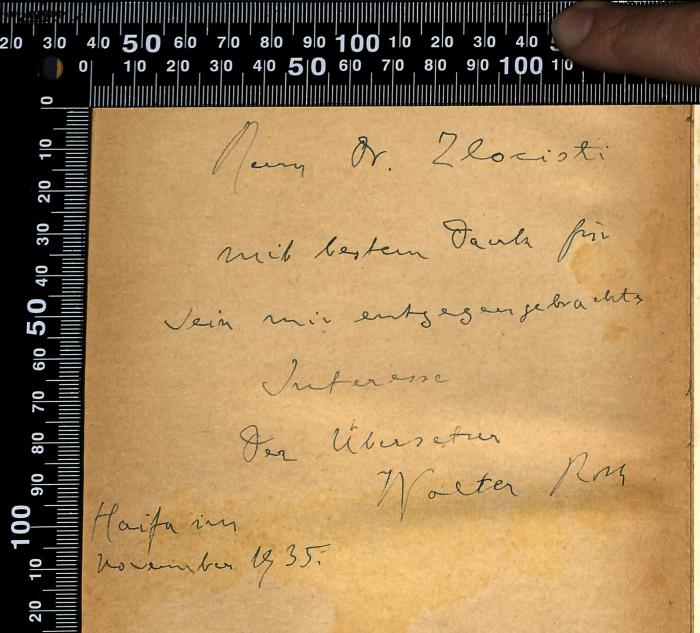 20 30 40 50 60 70 80 90 100 10 20 30 40
0 10 20 30 40 50 60 70 80 90 100 10
0
10
20
30
40
50
60
70
80
90
100
10
20
Herrn Dr. Zlocisti
mit bestem Dank für
sein mir entgegengebrachtes
Interesse
Der Übersetzer
Walter Roth
Haifa im
November 1935.